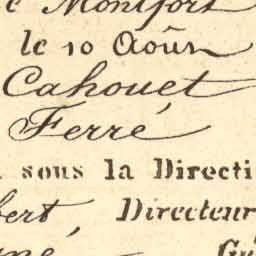 c Montfort
le 10 Août
Cahouet
Ferré
sous la Directi
bert, Directeur